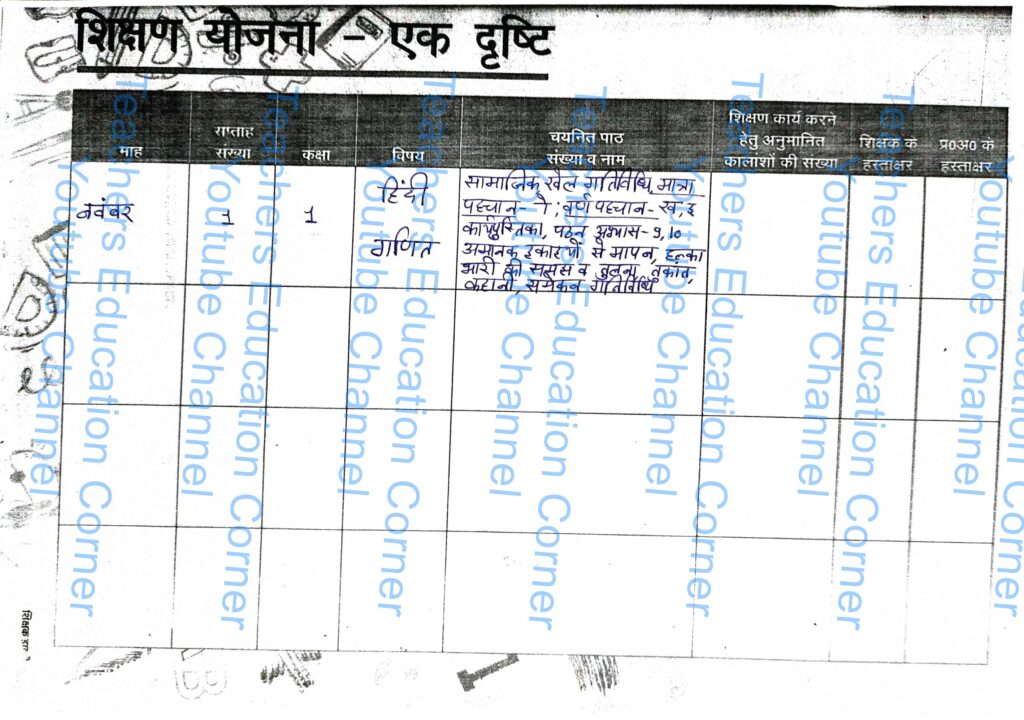 शिक्षण योजना - एक दृष्टि
माह
सप्ताह
संख्या
कक्षा
विषय
चयनित पाठ
संख्या व नाम
शिक्षण कार्य करने
हेतु अनुमानित
कालाशों की संख्या
शिक्षक के
हस्ताक्षर
प्र०अ० के
हस्ताक्षर
नवंबर
1
1
हिंदी
गणित
सामाजिक खेल गतिविधि, मात्रा
पहचान- ; वर्ण पहचान- ख, इ
कार्यपुस्तिका, पठन अभ्यास- 9, 10
अमानक इकाइयों से मापन, हल्का
भारी की समझ व तुलना, तुकांत,
कहानी, समेकन गतिविधि
शिक्षक
Teachers Education Corner
Youtube Channel
Teachers Education Corner
Youtube Channel
Teachers Education Corner
Youtube Channel
Teachers Education Corner
Youtube Channel
Teachers Education Corner
Youtube Channel
Teachers Education Corner
Youtube Channel